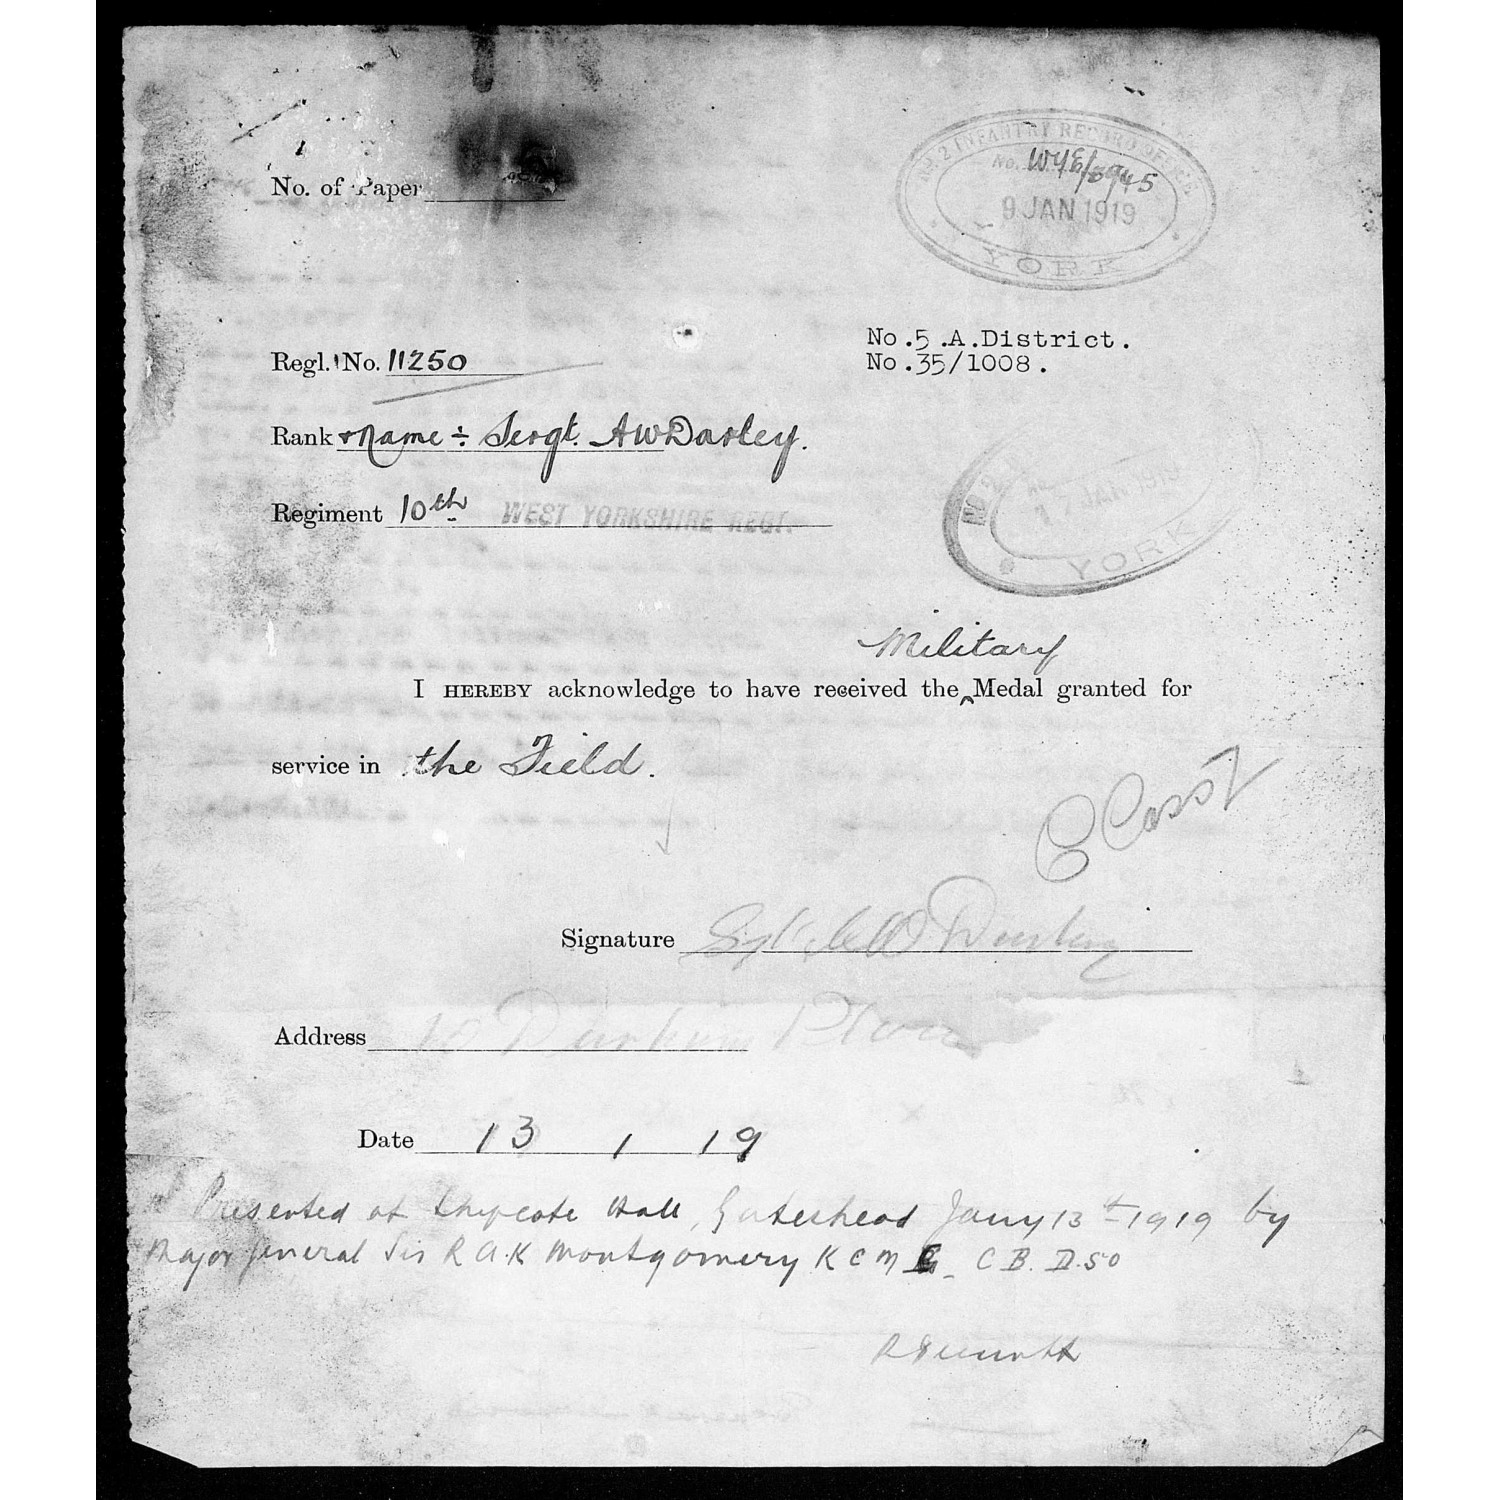 No. 2 INFANTRY RECORD OFFICE
No. WYE/8945
9 JAN 1919
YORK
No. of Paper
No.5.A.District.
No.35/1008.
Regl. No. 11250
Rank & Name ÷ Sergt. A W Darley.
Regiment 10th WEST YORKSHIRE REGT.
NO 2
17 JAN 1919
YORK
Military
I HEREBY acknowledge to have received the ^ Medal granted for
service in the Field.
Signature Sgt A W Darley
Address 10 Durham Place
Date 13 / 19
Presented at Shipcote Hall, Gateshead Jany 13th 1919 by
Major General Sir R A.K Montgomery K C M G. C B. D.S O